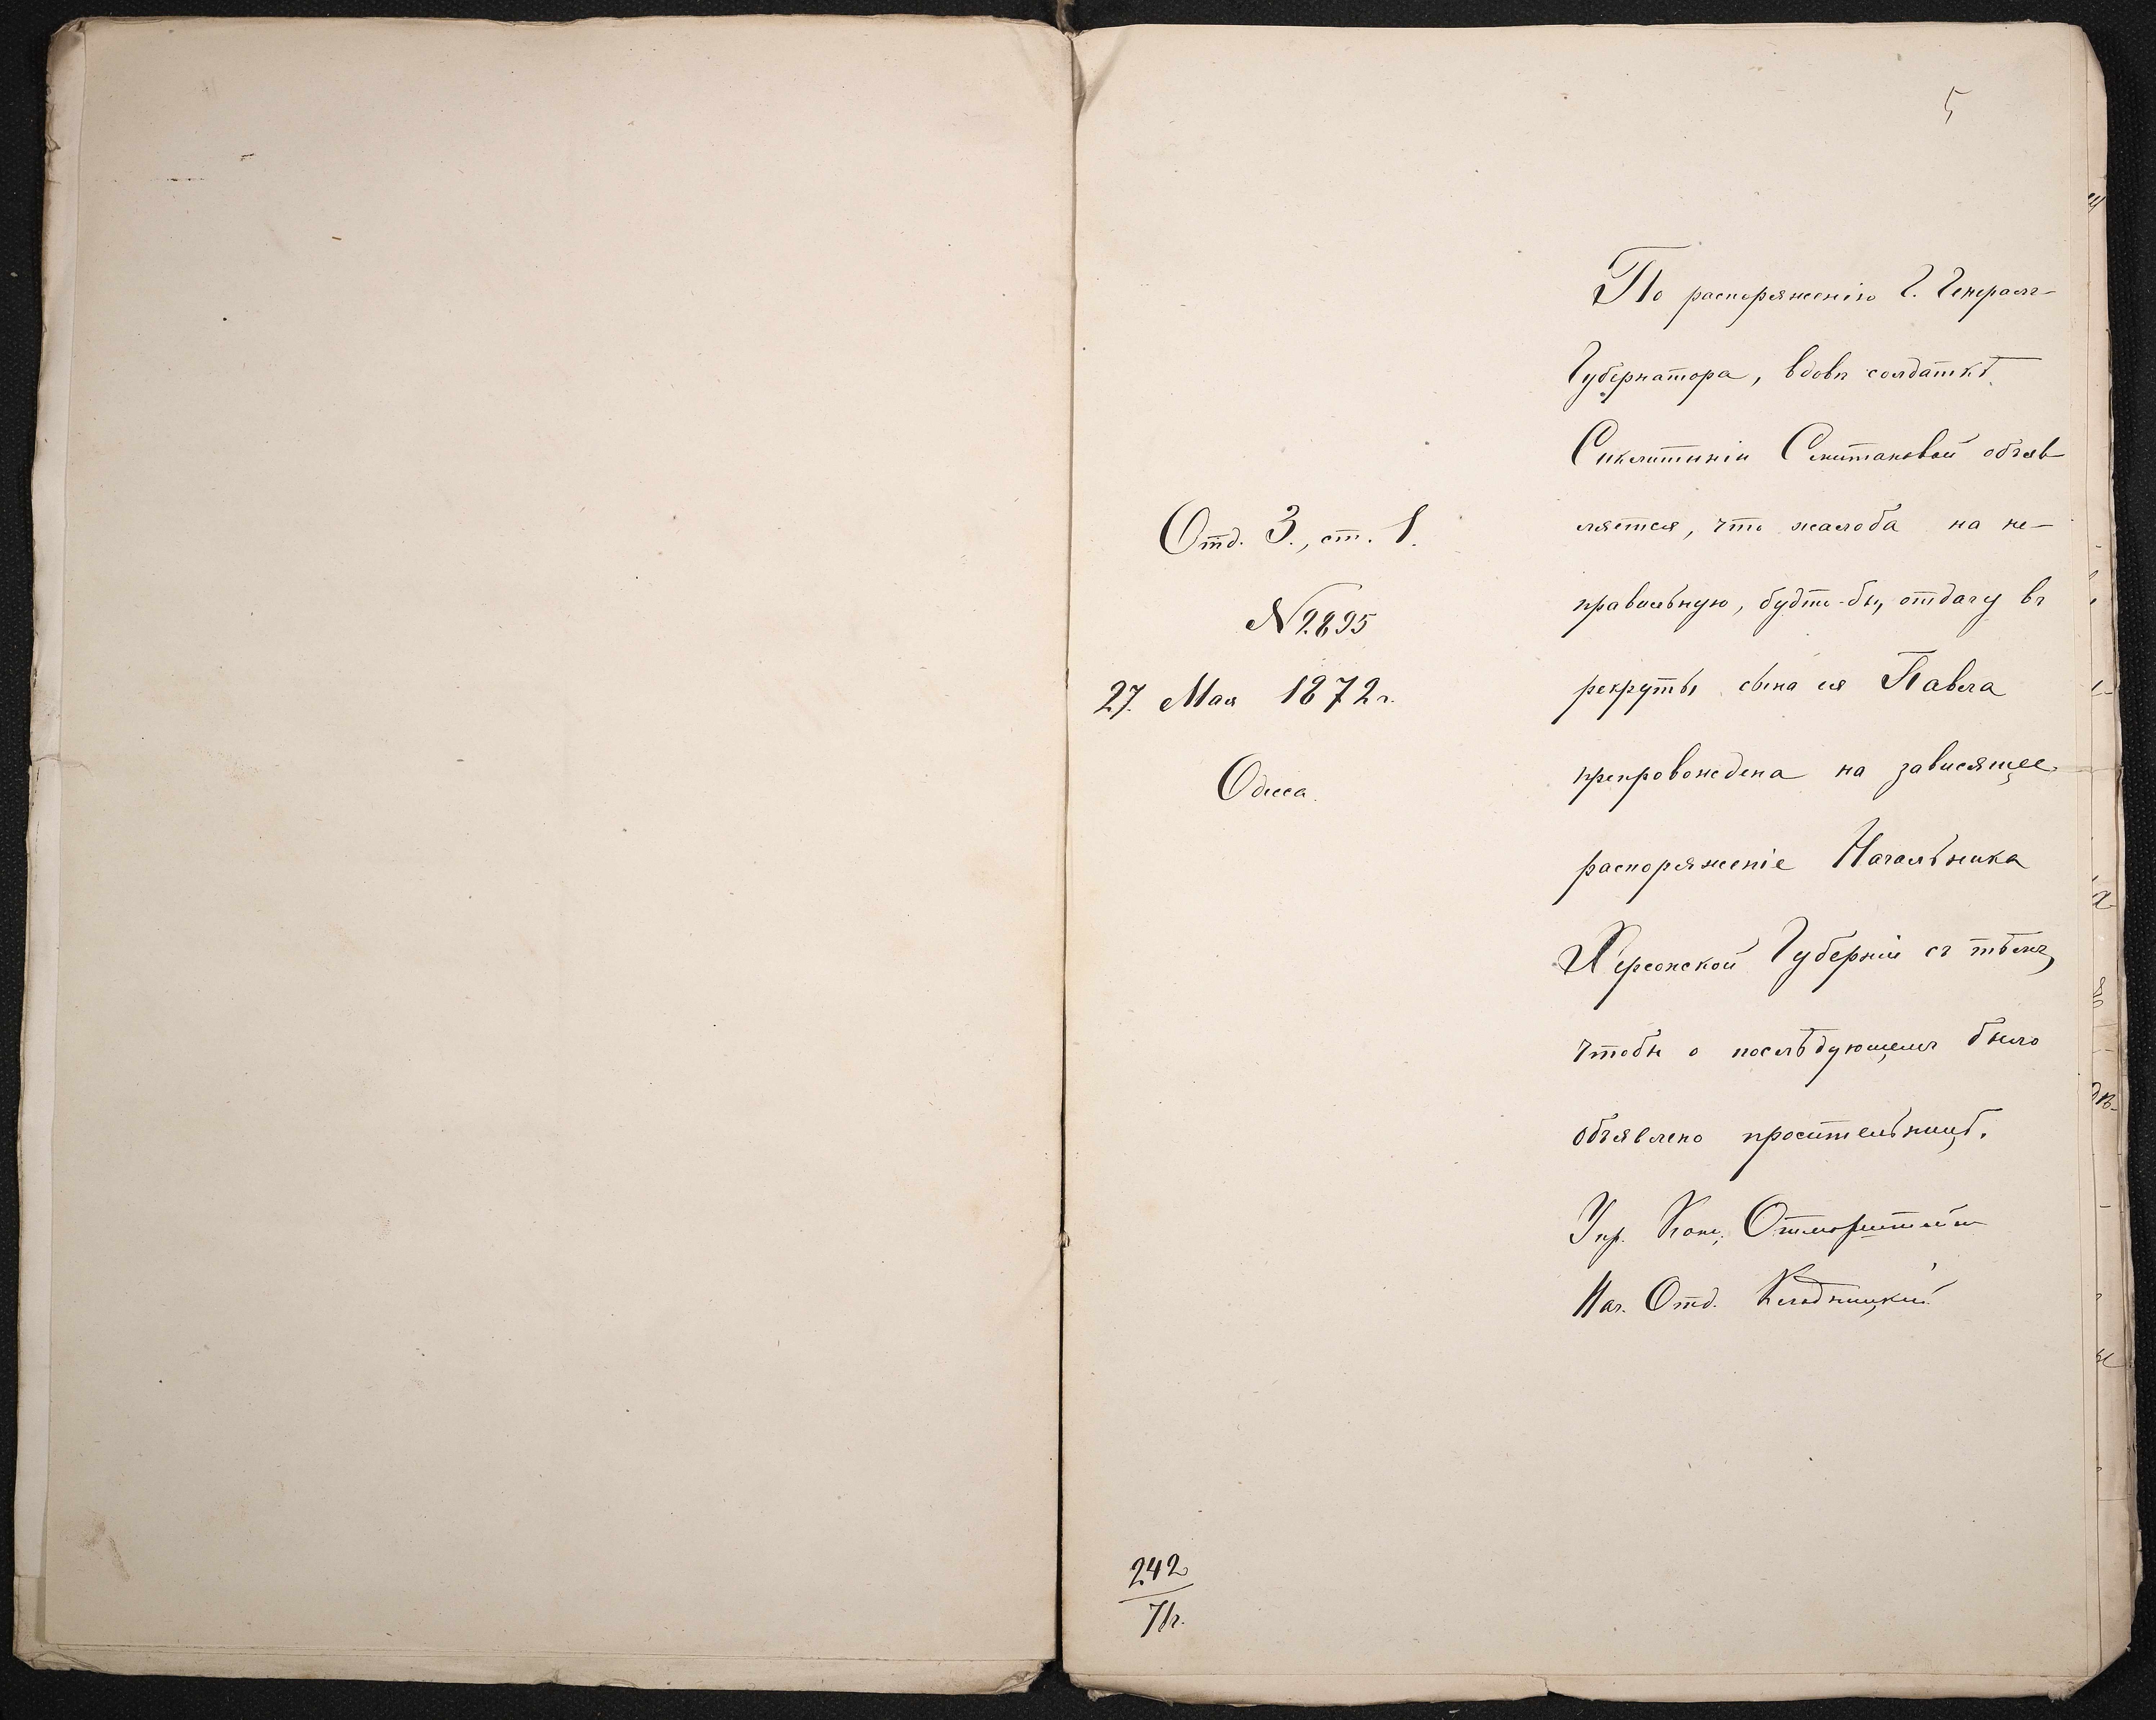 5
Отд. 3., ст. 1.
№ 2895
27. Мая 1872 г.
Одесса.
По распоряженію Г. Генералъ-
Губернатора, вдовѣ солдаткѣ
объяв-
ляется, что жалоба на не-
правильную, будто-бы, отдачу въ
рекруты сына ея Павла
препровождена на зависящее
распоряженіе Начальника
Херсонской Губерніи съ тѣмъ,
чтобы о послѣдующемъ было
объявлено просительницѣ.
Упр. Канц.
Нач. Отд.
242
71 г.